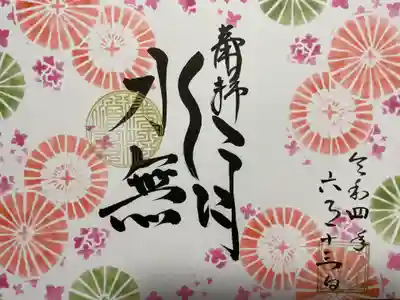 奉拝
水無月
令和四年
六月十三日